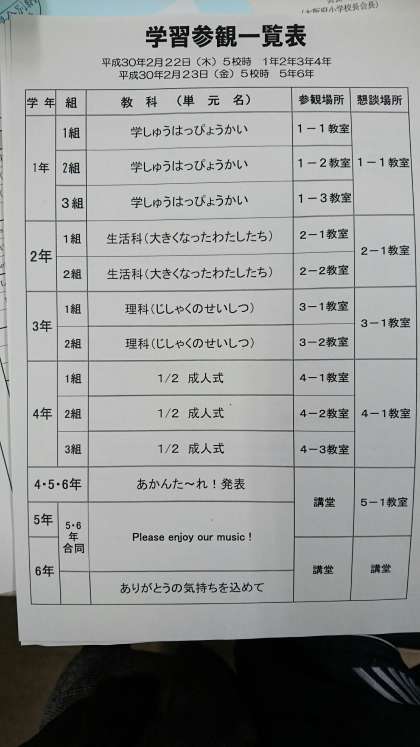 (大阪府小学校長会長)
学習参観一覧表
平成30年2月22日(木)5校時 1年2年3年4年
平成30年2月23日(金)5校時 5年6年
学 年 組 教 科 (単 元 名) 参観場所 懇談場所
1年 1組 学しゅうはっぴょうかい 1-1教室 1-1教室
2組 学しゅうはっぴょうかい 1-2教室
3組 学しゅうはっぴょうかい 1-3教室
2年 1組 生活科(大きくなったわたしたち) 2-1教室 2-1教室
2組 生活科(大きくなったわたしたち) 2-2教室
3年 1組 理科(じしゃくのせいしつ) 3-1教室 3-1教室
2組 理科(じしゃくのせいしつ) 3-2教室
4年 1組 1/2 成人式 4-1教室 4-1教室
2組 1/2 成人式 4-2教室
3組 1/2 成人式 4-3教室
4・5・6年 あかんた~れ!発表 講堂 5-1教室
5年 5・6年合同 Please enjoy our music!
6年 講堂 講堂
ありがとうの気持ちを込めて